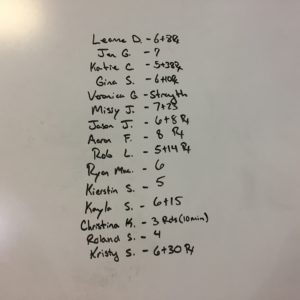 Leanne D. - 6+3 Rx
Jen G. - 7
Katie C. - 5+38 Rx
Gina S. - 6+10 Rx
Veronica G - Strength
Missy J. - 7+25
Jason J. - 6+8 Rx
Aaron F. - 8 Rx
Rob L. - 5+14 Rx
Ryan Mac. - 6
Kierstin S. - 5
Kayla S. - 6+15
Christina K. - 3 Rds (10min)
Roland S. - 4
Kristy S. - 6+30 Rx